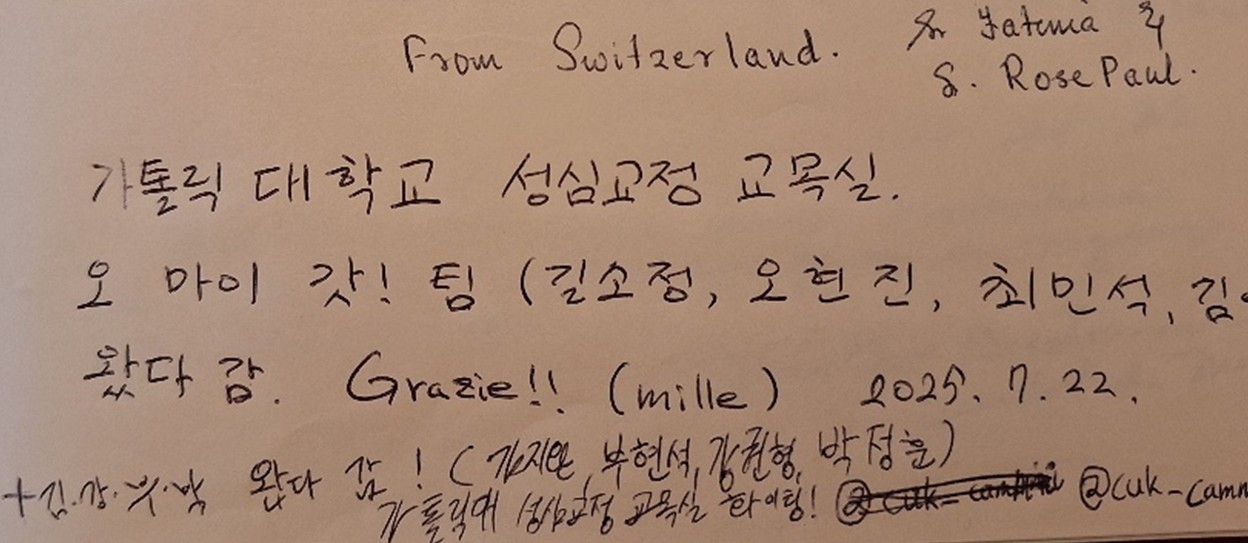 From Switzerland. Sr Fatima &
S. Rose Paul.
가톨릭 대학교 성심교정 교목실.
오 마이 갓! 팀 (길소정, 오현진, 최민석, 김
왔다 감. Grazie!! (mille) 2025. 7. 22.
+김.강.부.박 왔다 감! ( 부현석, 강권형, 박정훈)
가톨릭대 성심교정 교목실 화이팅! @cuk_camn